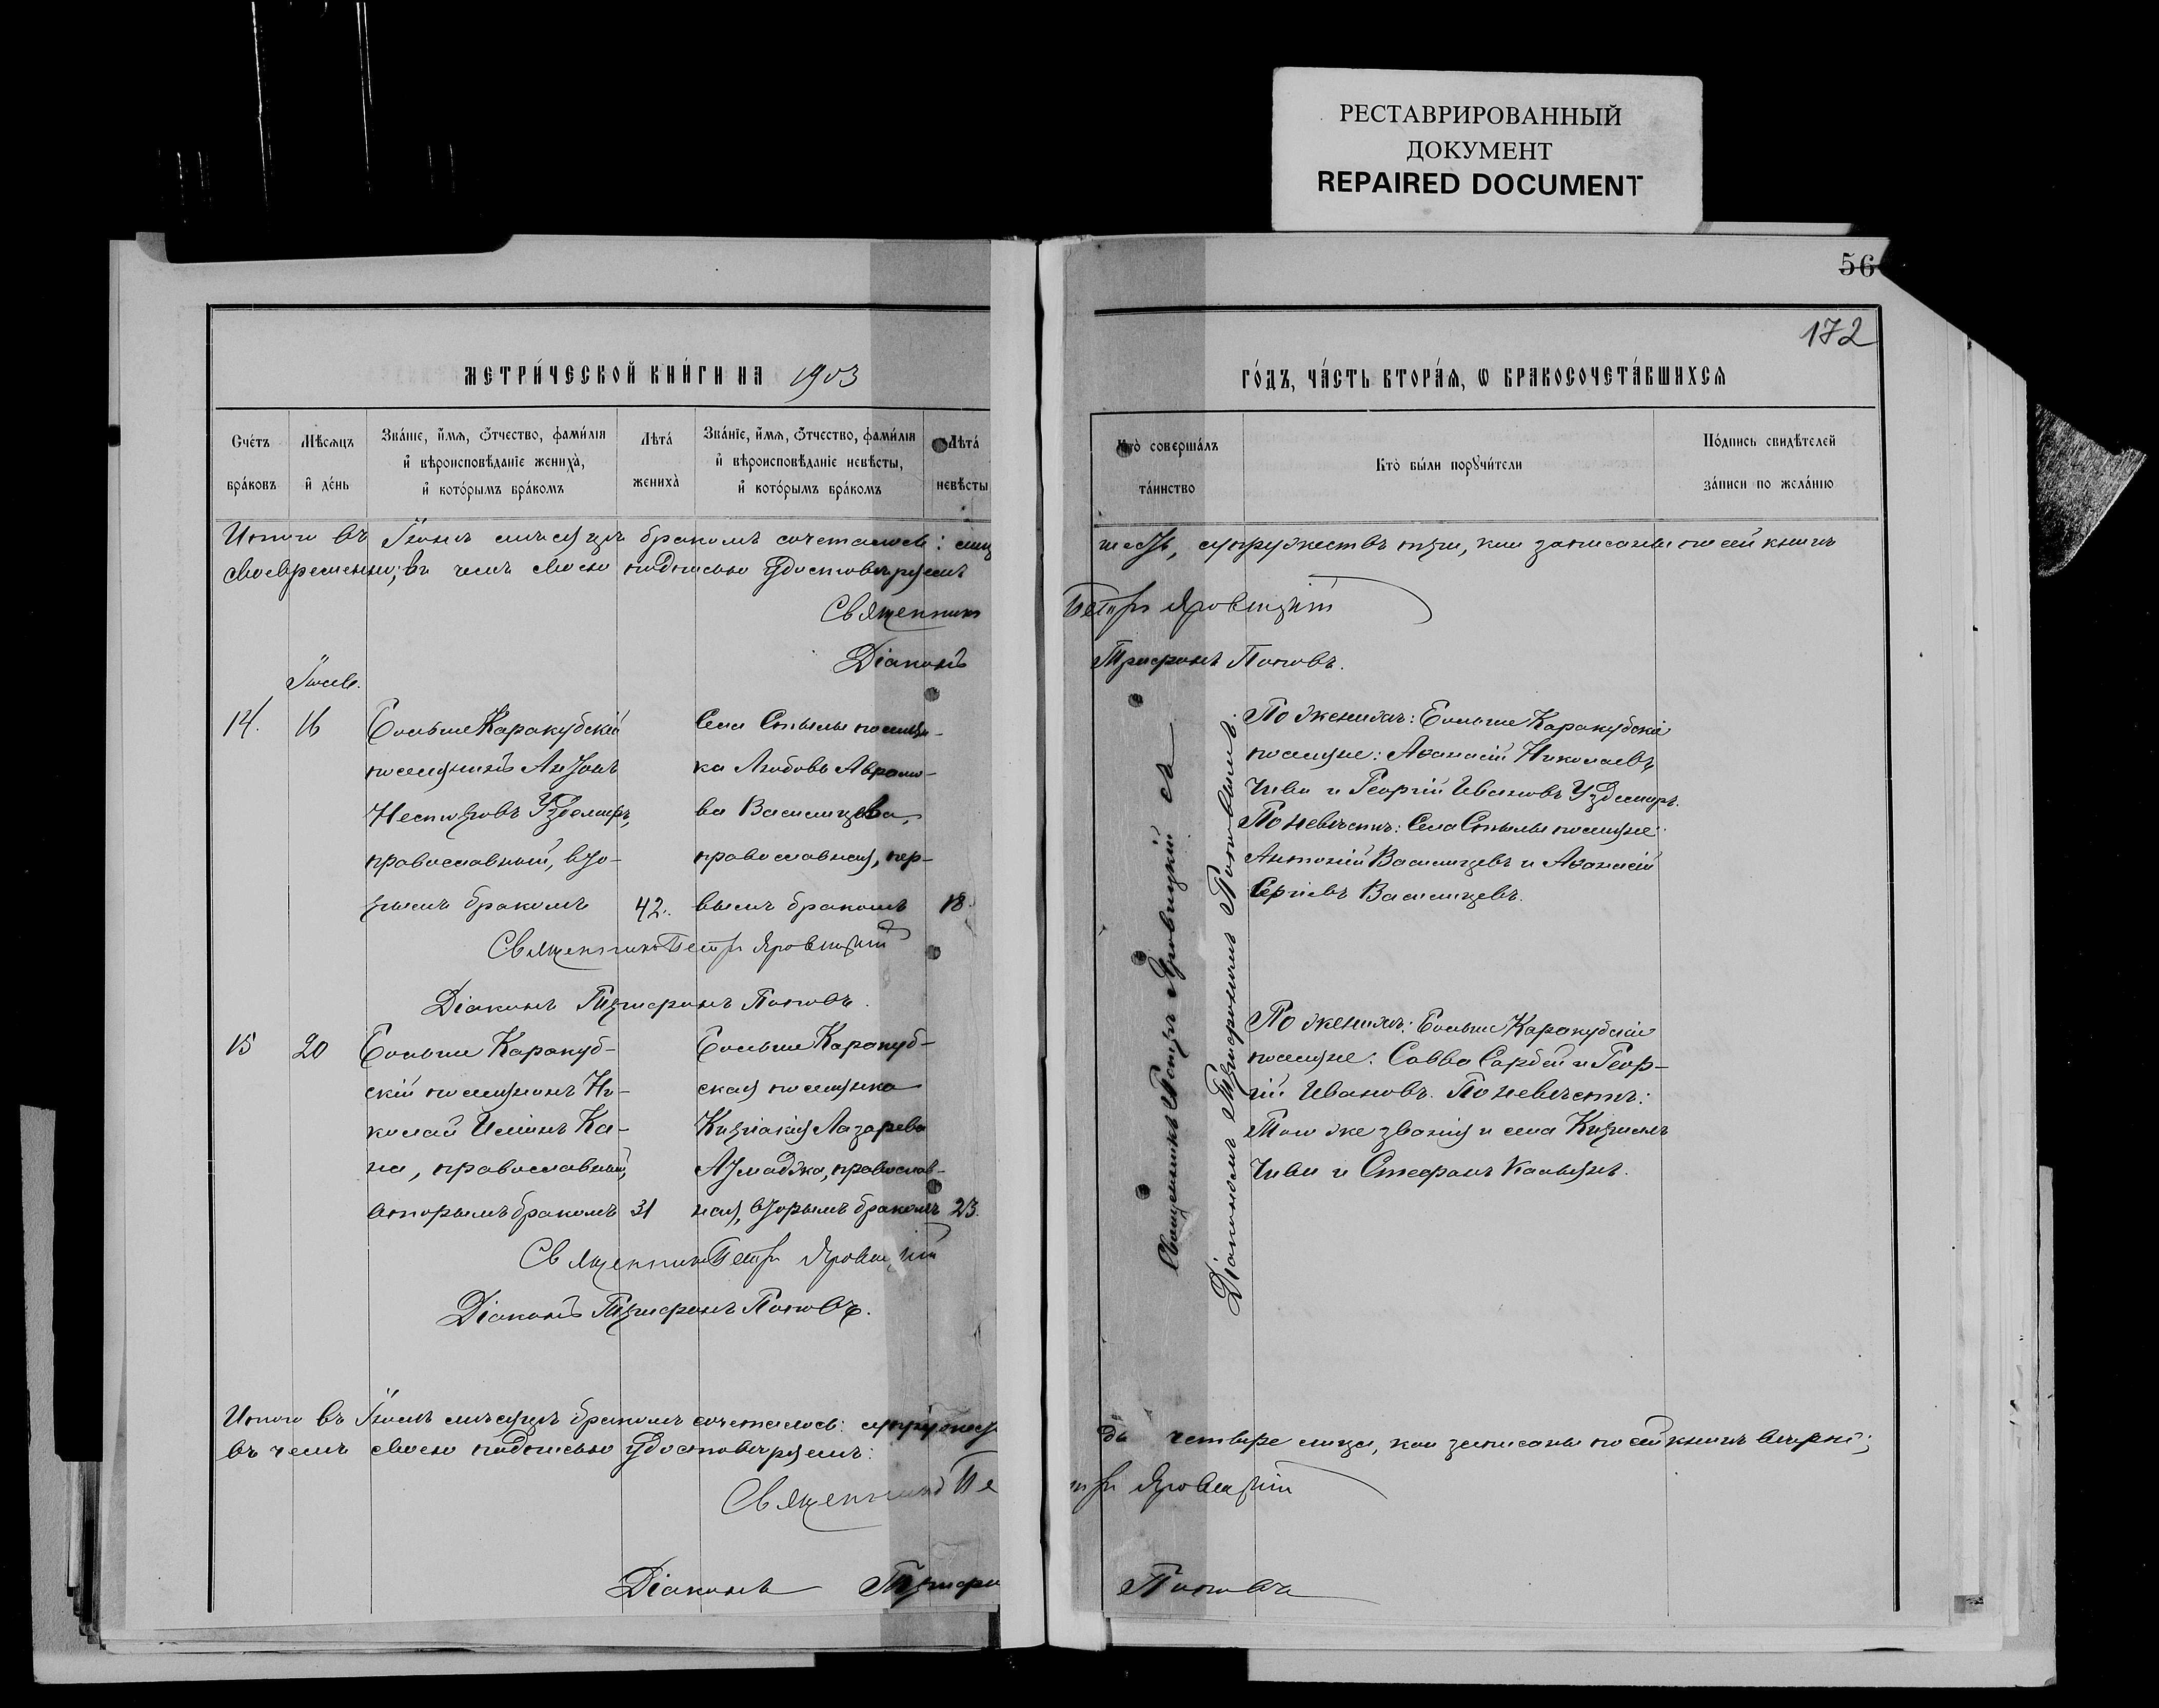 РЕСТАВРИРОВАННЫЙ
ДОКУМЕНТ
REPAIRED DOCUMENT
56
172
МЕТРИ́ЧЕСКОЙ КНИ́ГИ НА 1903
ГО́ДЪ, ЧА́СТЬ ВТОРА́Я, Ѡ БРАКОСОЧЕТА́ВШИХСЯ
Сче́тъ бра́ковъ
Мѣ́сяцъ и҆ де́нь
Зва́нїе, и҆́мя, ѻ҆́тчество, фами́лїя и҆ вѣроисповѣ́данїе жениха̀, и҆ кото́рымъ бра́комъ
Лѣта́ жениха̀
Зва́нїе, и҆́мя, ѻ҆́тчество, фами́лїя и҆ вѣроисповѣ́данїе невѣ́сты, и҆ кото́рымъ бра́комъ
Лѣта́ невѣ́сты
Кто̀ соверша́лъ та́инство
Кто̀ бы́ли поручи́тели
По́дпись свидѣ́телей за́писи по жела́нїю
Итого въ мѣсяцѣ бракомъ сочеталось: лицъ
шесть, супружествъ три, кои записаны по сей книгѣ
своевременно; въ чемъ своею подписью удостовѣряемъ
Священникъ Петръ Яровицкій
Діаконъ Трифонъ Поповъ.
14. 16
Больше Каракубскій
поселянинъ Антонъ
Несторовъ Уздемиръ,
православный, вто-
рымъ бракомъ 42.
Села Стылы поселян-
ка Любовь Аврамо-
ва Василицева,
православная, пер-
вымъ бракомъ 18.
По женихѣ: Больше Каракубскіе
поселяне: Аѳанасій Николаевъ
Чиви и Георгій Ивановъ Уздемиръ.
По невѣстѣ: Села Стылы поселяне
Антоній Василицевъ и Аѳанасій
Сергіевъ Василицевъ.
Священникъ Петръ Яровицкій
Діаконъ Трифонъ Поповъ.
Священникъ Петръ Яровицкій съ
Діакономъ Трифономъ Поповымъ.
15 20
Больше Каракуб-
скій поселянинъ Ни-
колай Ильинъ Ка-
на, православный,
вторымъ бракомъ 31
Больше Каракуб-
ская поселянка
Киріакія Лазарева
Атмаджа, православ-
ная, вторымъ бракомъ 23.
По женихѣ: Больше Каракубскіе
поселяне: Савва Сарбей и Геор-
гій Ивановъ. По невѣстѣ:
Того же званія и села Кириллъ
Чиви и Стефанъ
Священникъ Петръ Яровицкій
Діаконъ Трифонъ Поповъ.
Итого въ мѣсяцѣ бракомъ сочеталось:
четыре лица, кои записаны по сей книгѣ вѣрно;
въ чемъ своею подписью удостовѣряемъ:
Священникъ Петръ Яровицкій
Діаконъ Трифонъ Поповъ